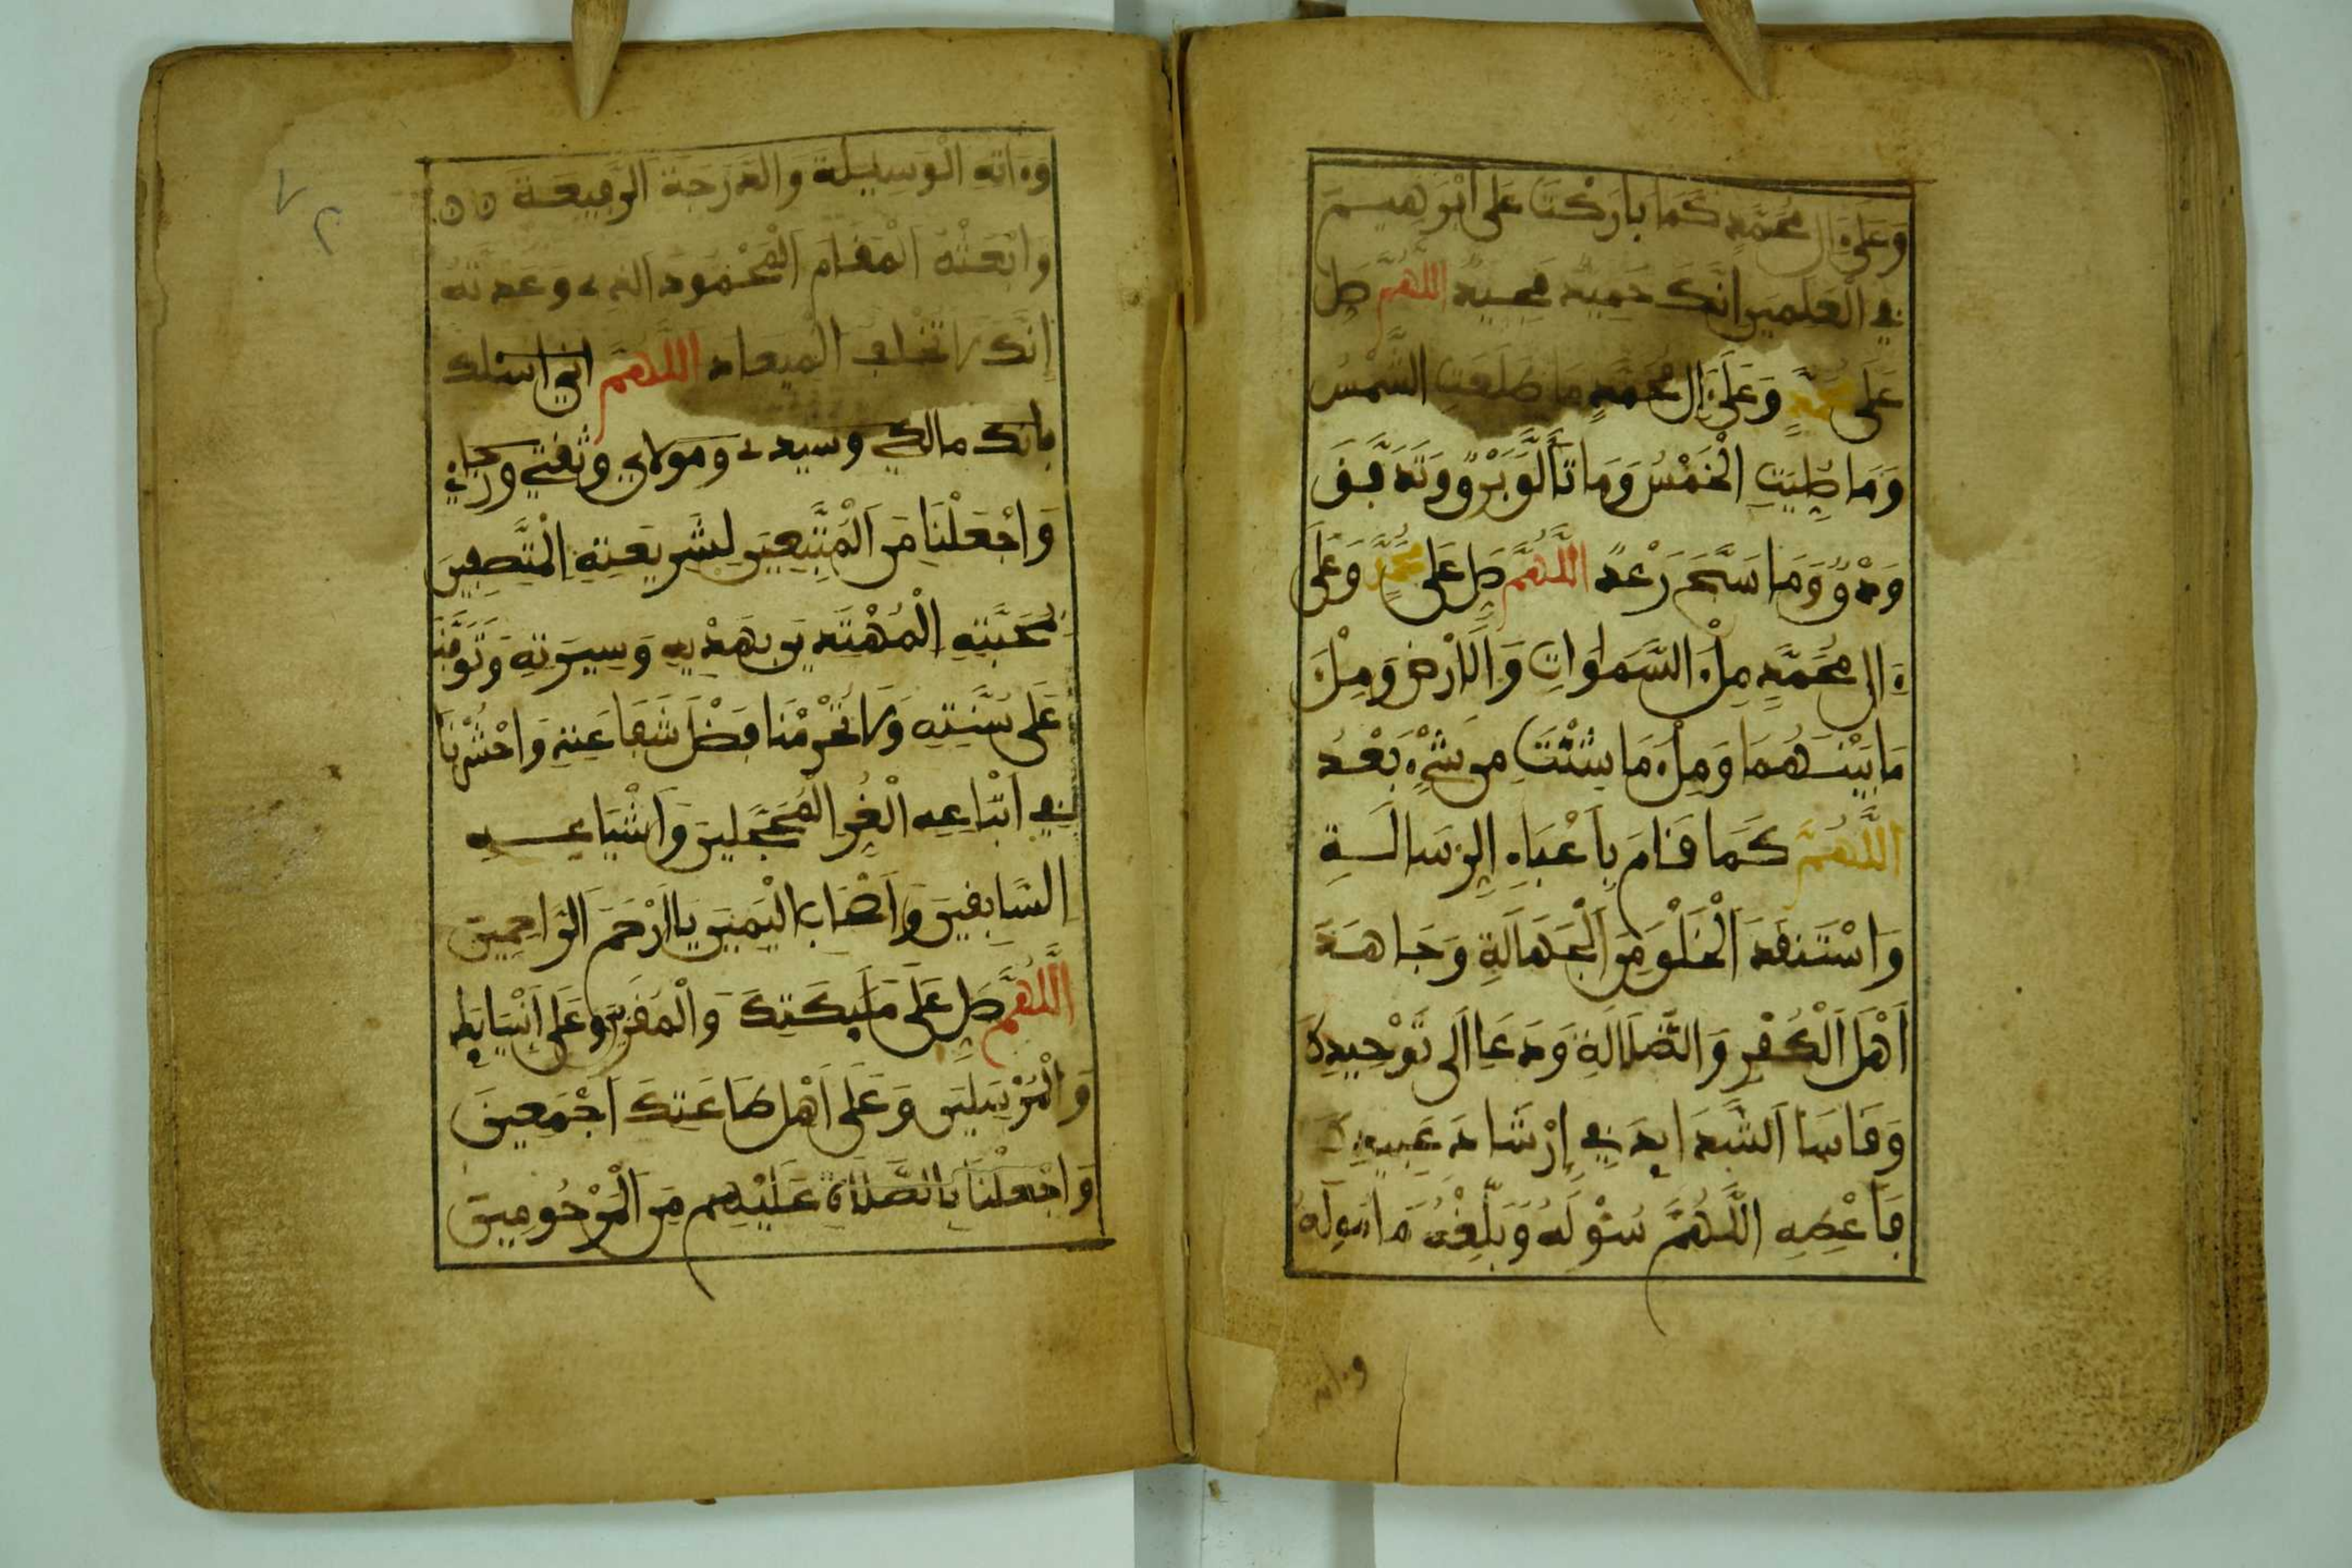 وَعَلَىٰ ءَالِ مُحَمَّدٍ كَمَا بَارَكْتَ عَلَى إِبْرَهِيمَ
فِي الْعَلَمِينَ إِنَّكَ حَمِيدٌ مَجِيدٌ اللَّهُمَّ صَلِّ
عَلَى مُحَمَّدٍ وَعَلَى ءَالِ مُحَمَّدٍ مَا طَلَعَتِ الشَّمْسُ
وَمَا صُلِّيَتِ الْخَمْسُ وَمَا تَأَلَّقَ بَرْقٌ وَتَدَفَّقَ
وَدْقٌ وَمَا سَبَّحَ رَعْدٌ اللَّهُمَّ صَلِّ عَلَى مُحَمَّدٍ وَعَلَى
ءَالِ مُحَمَّدٍ مِلْءَ السَّمَاوَاتِ وَالْأَرْضِ وَمِلْءَ
مَا بَيْنَهُمَا وَمِلْءَ مَا شِئْتَ مِن شَيْءٍ بَعْدُ
اللَّهُمَّ كَمَا قَامَ بِأَعْبَاءِ الرِّسَالَةِ
وَاسْتَنقَذَ الْخَلْقَ مِنَ الْجَهَالَةِ وَجَاهَدَ
أَهْلَ الْكُفْرِ وَالضَّلَالَةِ وَدَعَا إِلَى تَوْحِيدِكَ
وَقَاسَا الشَّدَايِدَ فِي إِرْشَادِ عَبِيدِكَ
فَأَعْطِهِ اللَّهُمَّ سُؤْلَهُ وَبَلِّغْهُ مَأْمُولَهُ
وءاته
وَءَاتِهِ الْوَسِيلَةَ وَالدَّرَجَةَ الرَّفِيعَةَ
وَابْعَثْهُ الْمَقَامَ الْمَحْمُودَ الذِي وَعَدتَّهُ
إِنَّكَ لَا تُخْلِفُ الْمِيعَادَ اللَّهُمَّ إني أسئلك
بأنك مالكي وسيدي ومولاي وثقتي ورجاءي
وَاجْعَلْنَا مِنَ الْمُتَّبِعِينَ لِشَرِيعَتِهِ الْمُتَّصِفِينَ
بِمَحَبَّتِهِ الْمُهْتَدِينَ بِهَدْيِهِ وَسِيرَتِهِ وَتَوَفَّنَا
عَلَى سُنَّتِهِ وَلَا تَحْرِمْنَا فَضْلَ شَفَاعَتِهِ وَاحْشُرْنَا
فِي أَتْبَاعِهِ الْغُرِّ الْمُحَجَّلِينَ وَأَشْيَاعِهِ
السَّابِقِينَ وَأَصْحَابِ الْيَمِينِ يَا أَرْحَمَ الرَّاحِمِينَ
اللَّهُمَّ صَلِّ عَلَى مَلَئِكَتِكَ وَالْمُقَرَّبِينَ وَعَلَى أَنْبِيَائِكَ
وَالْمُرْسَلِينَ وَعَلَى أَهْلِ طَاعَتِكَ أَجْمَعِينَ
وَاجْعَلْنَا بِالصَّلَاةِ عَلَيْهِمْ مِنَ الْمَرْحُومِينَ